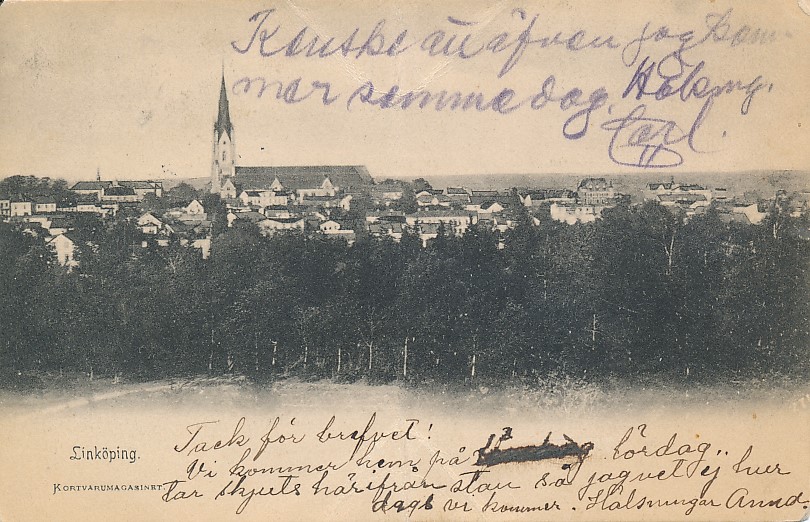 Kanske att äfven jag kom-
mer samma dag. Helsing.
Carl.
Tack för brefvet!
Vi kommer hem på lördag.
tar skjuts härifrån stan så jag vet ej hur
dags vi kommer. Hälsningar Anna
Linköping.
KORTVARUMAGASINET.